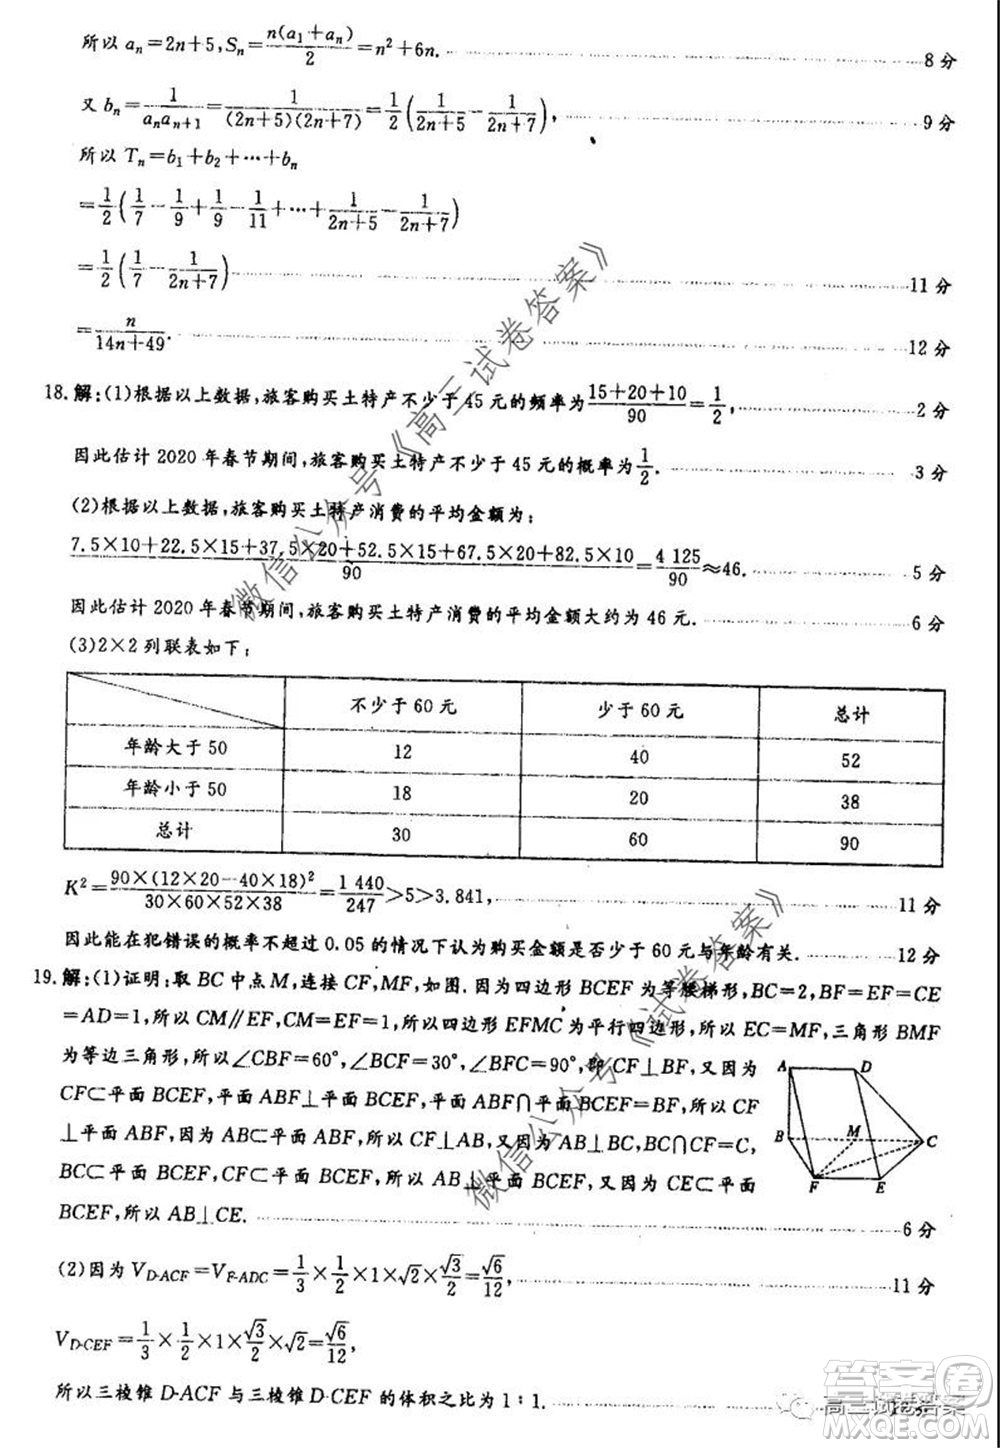 所以 aₙ=2n+5,Sₙ=n(a₁+aₙ)/2=n²+6n. 8 分
又 bₙ=1/(aₙaₙ₊₁)=1/((2n+5)(2n+7))=1/2(1/(2n+5)-1/(2n+7)), 9 分
所以 Tₙ=b₁+b₂+…+bₙ
=1/2(1/7-1/9+1/9-1/11+…+1/(2n+5)-1/(2n+7))
=1/2(1/7-1/(2n+7)) 11 分
=n/(14n+49). 12 分
18.解:(1)根据以上数据,旅客购买土特产不少于 45 元的频率为(15+20+10)/90=1/2, 2 分
因此估计 2020 年春节期间,旅客购买土特产不少于 45 元的概率为1/2. 3 分
(2)根据以上数据,旅客购买土特产消费的平均金额为:
(7.5×10+22.5×15+37.5×20+52.5×15+67.5×20+82.5×10)/90=4 125/90≈46. 5 分
因此估计 2020 年春节期间,旅客购买土特产消费的平均金额大约为 46 元. 6 分
(3)2×2 列联表如下:
不少于 60 元 少于 60 元 总计
年龄大于 50 12 40 52
年龄小于 50 18 20 38
总计 30 60 90
K²=90×(12×20-40×18)²/(30×60×52×38)=1 440/247>5>3.841, 11 分
因此能在犯错误的概率不超过 0.05 的情况下认为购买金额是否少于 60 元与年龄有关. 12 分
19.解:(1)证明:取 BC 中点 M,连接 CF,MF,如图.因为四边形 BCEF 为等腰梯形,BC=2,BF=EF=CE
=AD=1,所以 CM∥EF,CM=EF=1,所以四边形 EFMC 为平行四边形,所以 EC=MF,三角形 BMF
为等边三角形,所以∠CBF=60°,∠BCF=30°,∠BFC=90°,即 CF⊥BF,又因为平面 ABF⊥平面 BCEF,
CF⊂平面 BCEF,平面 ABF⊥平面 BCEF,平面 ABF∩平面 BCEF=BF,所以 CF
⊥平面 ABF,因为 AB⊂平面 ABF,所以 CF⊥AB,又因为 AB⊥BC,BC∩CF=C,
BC⊂平面 BCEF,CF⊂平面 BCEF,所以 AB⊥平面 BCEF,又因为 CE⊂平面
BCEF,所以 AB⊥CE. 6 分
A D B M C F E
(2)因为 V_D-ACF=V_F-ADC=1/3×1/2×1×√2×√3/2=√6/12, 11 分
V_D-CEF=1/3×1/2×1×√3/2×√2=√6/12,
所以三棱锥 D-ACF 与三棱锥 D-CEF 的体积之比为 1∶1.
微信公众号《高三试卷答案》
微信公众号《试卷答案》
高三试卷答案
答案圈
MXQE.COM